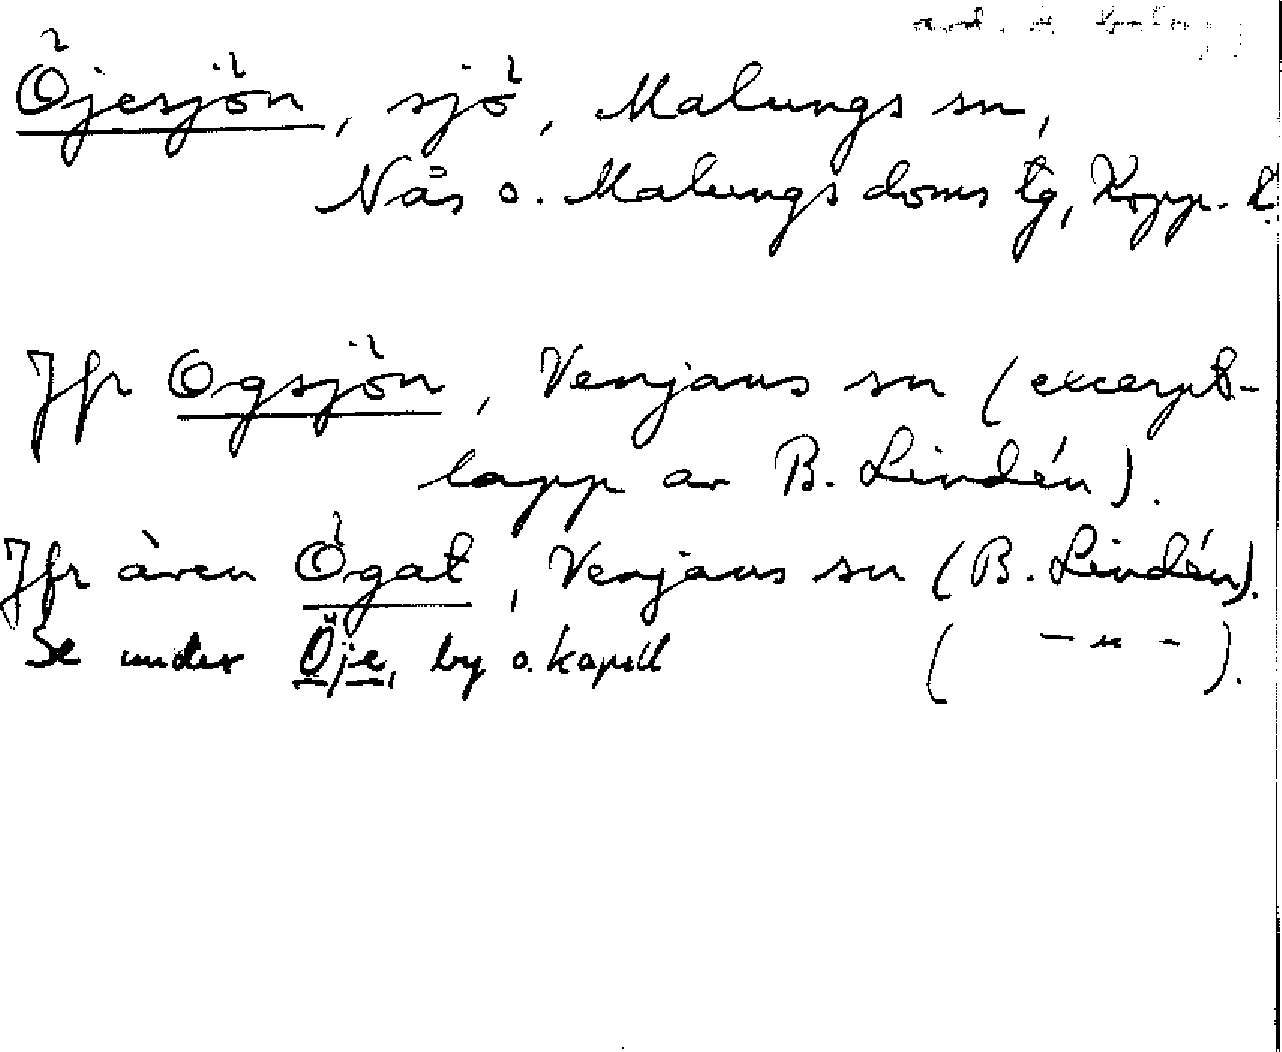 Öjesjön, sjö, Malungs sn,
Nås o. Malungs doms tg, Kopp. l.
Jfr Ogsjön, Venjans sn (excerpt-
lapp av B. Lindén).
Jfr även Ögat, Venjans sn (B. Lindén).
Se under Öje, by o. kapell ( — " — ).